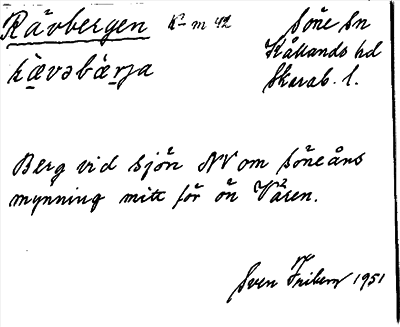 Rävbergen K² m 42 Söne Sn
Kållands hd
ræ̀vəbæ̀rja Skarab. l.
Berg vid sjön NV om Söneåns
mynning mitt för ön Våren.
Sven Friberg 1951